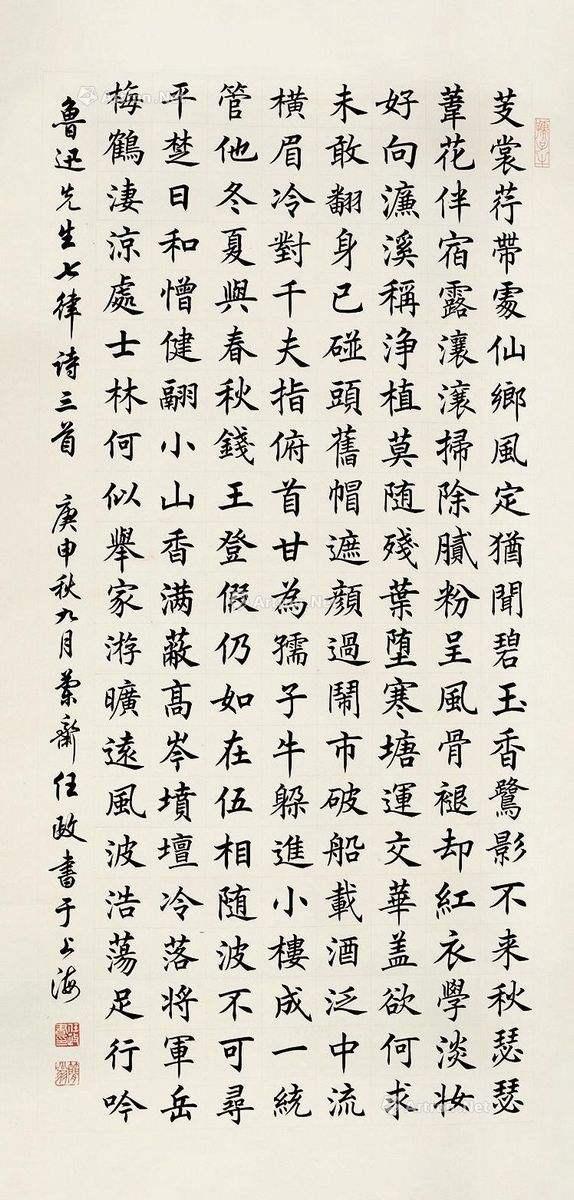 芰裳荇帶處仙鄉風定猶聞碧玉香鷺影不来秋瑟瑟
葦花伴宿露瀼瀼掃除膩粉呈風骨褪却紅衣學淡妝
好向濂溪稱淨植莫随殘葉墮寒塘運交華盖欲何求
未敢翻身已碰頭舊帽遮顏過鬧市破船載酒泛中流
橫眉冷對千夫指俯首甘為孺子牛躲進小樓成一統
管他冬夏與春秋錢王登假仍如在伍相随波不可尋
平楚日和憎健翮小山香满蔽髙岑墳壇冷落将軍岳
梅鶴淒涼處士林何似舉家游曠遠風波浩蕩足行吟
魯迅先生七律诗三首 庚申秋九月蘭齋任政書于上海
Artron.Net